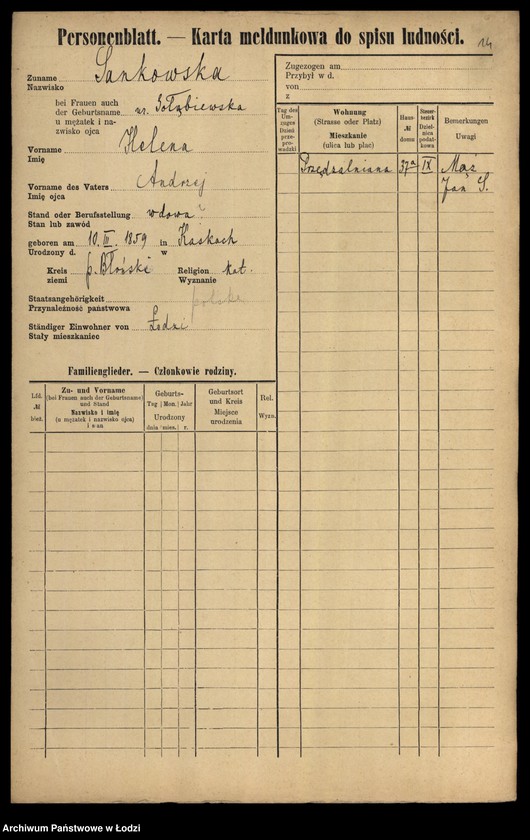 Personenblatt. — Karta meldunkowa do spisu ludności.
14
Zuname Sankowska
Nazwisko
bei Frauen auch
der Geburtsname ur. Gołębiewska
u mężatek i na-
zwisko ojca
Vorname Helena
Imię
Vorname des Vaters Andrzej
Imię ojca
Stand oder Berufsstellung wdowa?
Stan lub zawód
geboren am 10. III. 1859 in Kaskach
Urodzony d. w
Kreis p. Błoński Religion kat.
ziemi Wyznanie
Staatsangehörigkeit polska
Przynależność państwowa
Ständiger Einwohner von Łodzi
Stały mieszkaniec
Familienglieder. — Członkowie rodziny.
Lfd. № bież.
Zu- und Vorname
(bei Frauen auch der Geburtsname)
und Stand
Nazwisko i imię
(u mężatek i nazwisko ojca)
i stan
Geburts-
Tag Mon. Jahr
Urodzony
dnia mies. r.
Geburtsort
und Kreis
Miejsce
urodzenia
Rel.
Wyzn.
Zugezogen am
Przybył w d.
von
z
Tag des Um-
zuges
Dzień
prze-
prowadzki
Wohnung
(Strasse oder Platz)
Mieszkanie
(ulica lub plac)
Haus-
№
domu
Steuer-
bezirk
Dziel-
nica
podat-
kowa
Bemerkungen
Uwagi
Przędzalniana 37a IX Mąż
Jan S.
Archiwum Państwowe w Łodzi